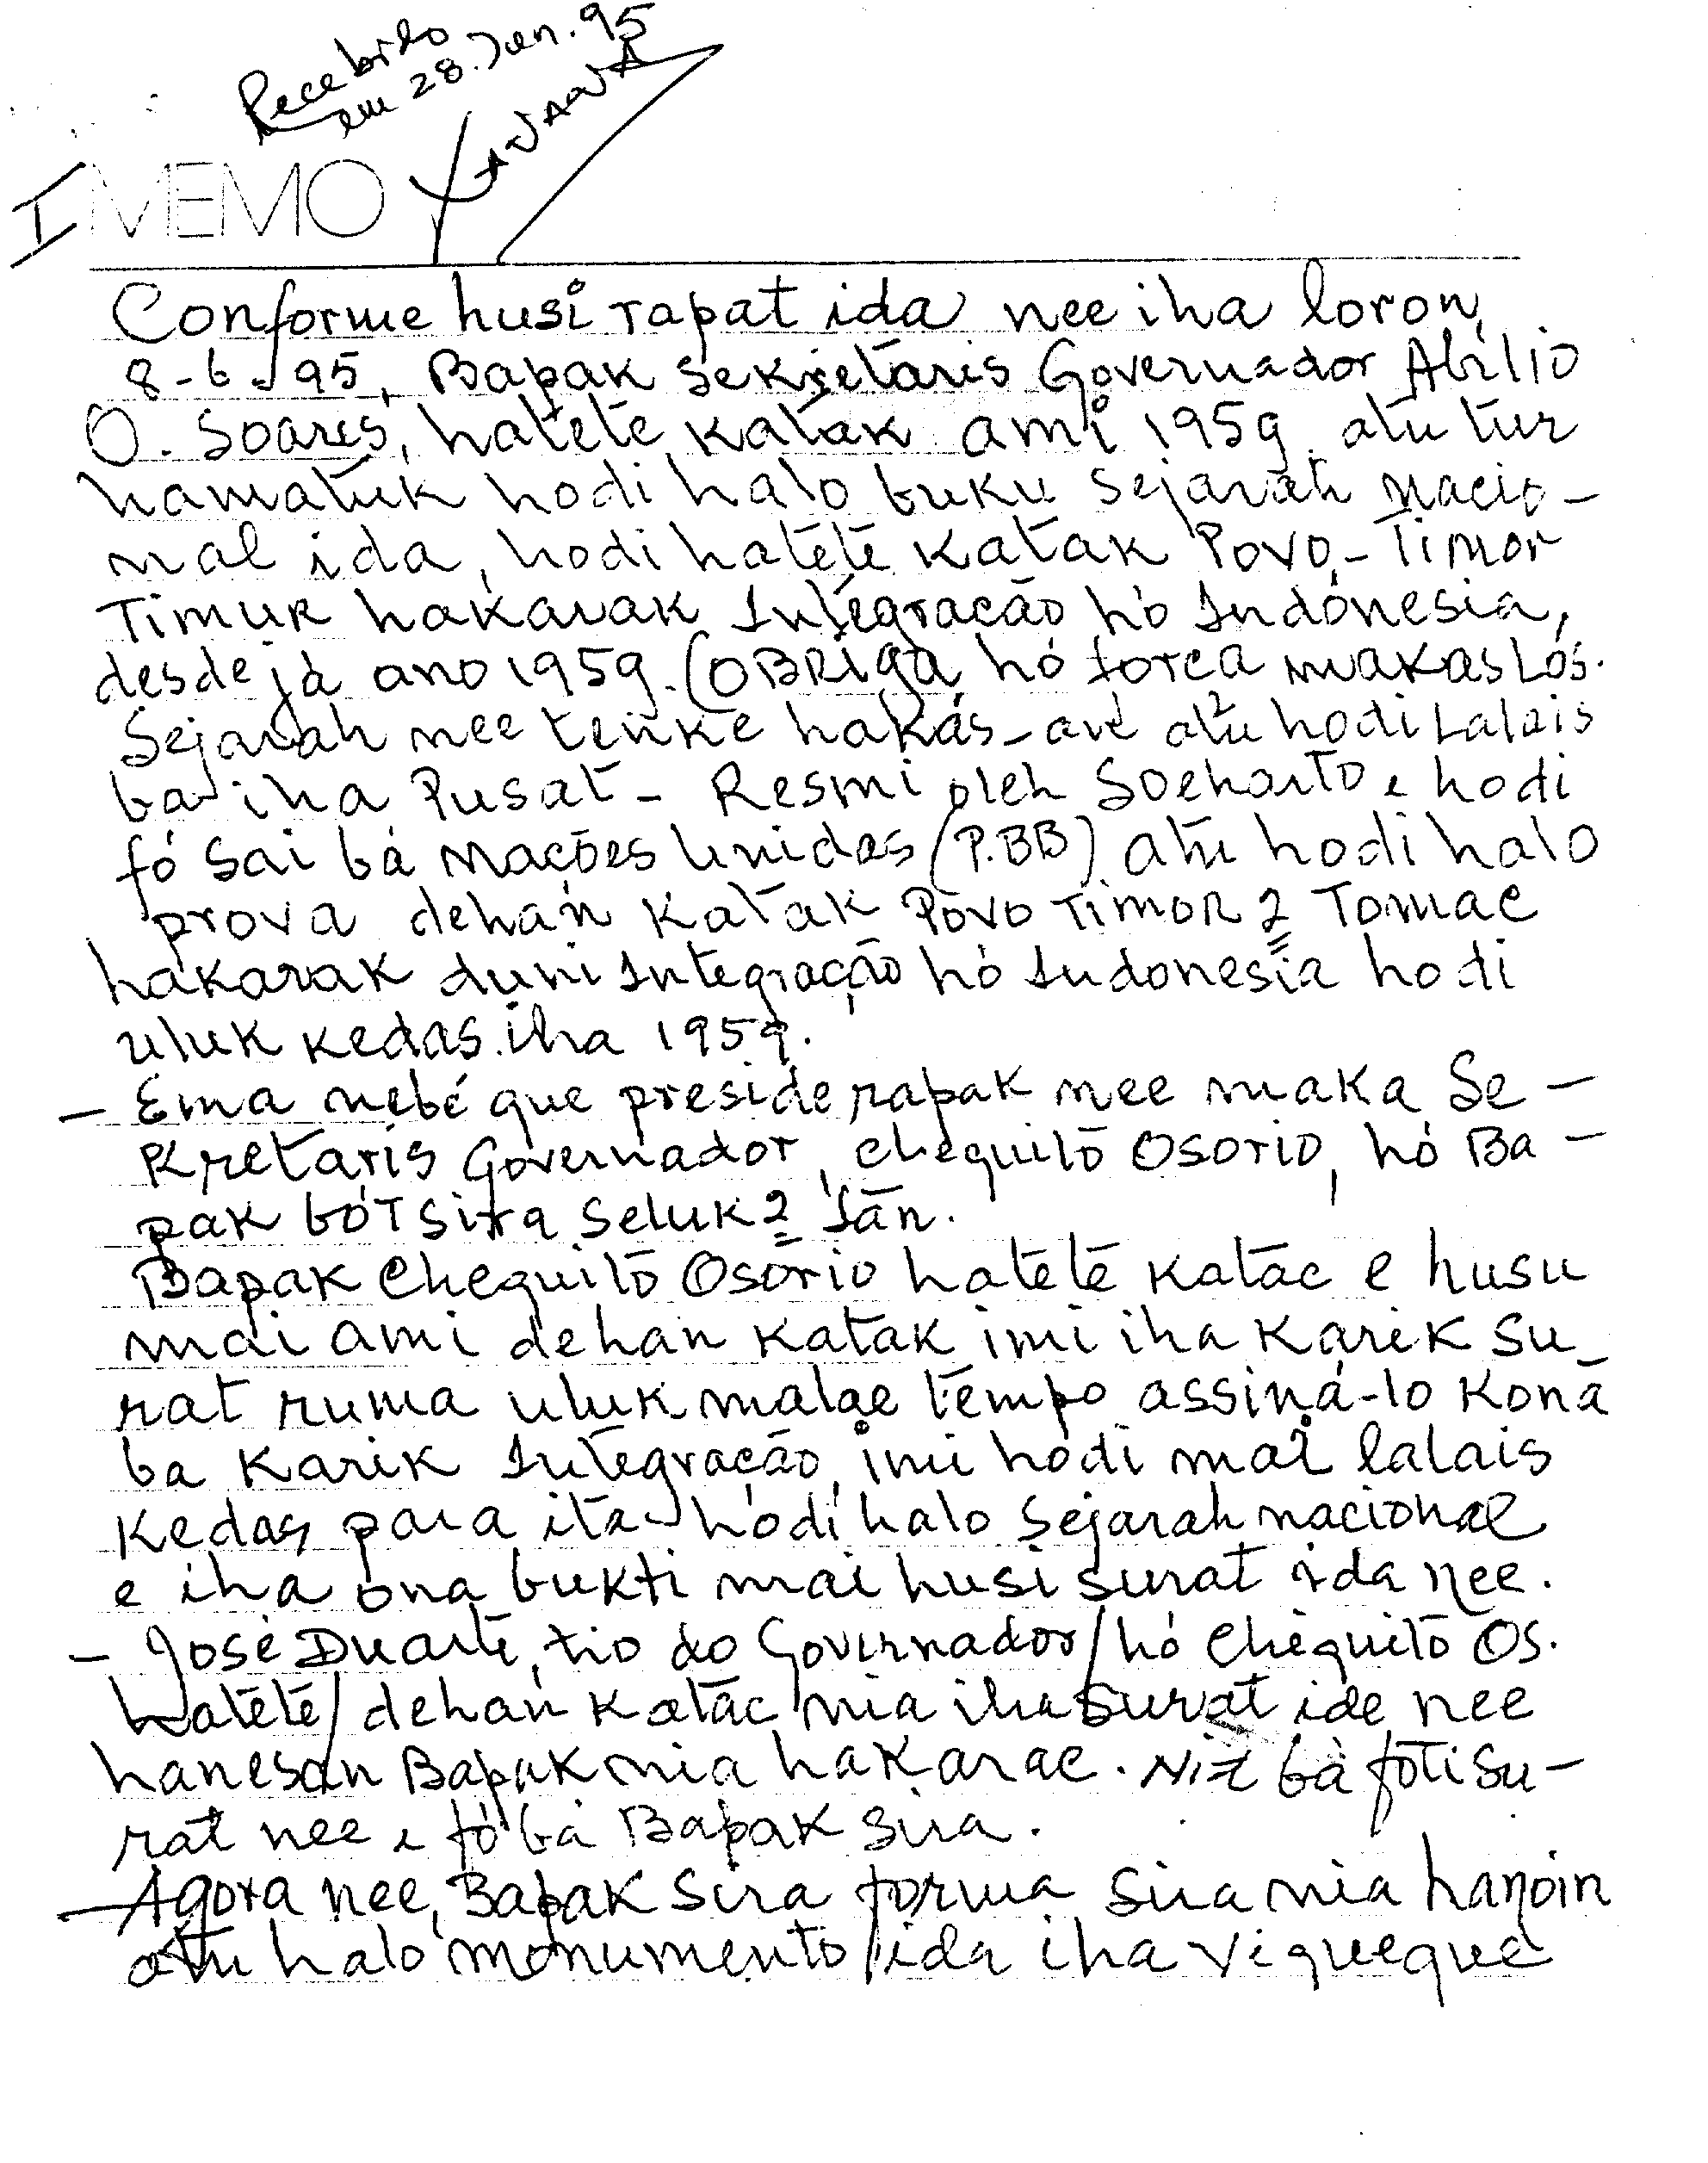 Recebido
em 28.Jun.95
XANANA
I MEMO
Conforme husi rapat ida nee iha loron
8-6-95, Bapak Sekretáris Governador Abílio
O. Soares, hatete katak ami 1959 atu tur
hamatuk hodi halo buku sejarah nacio-
nal ida, hodi hatete katak Povo-Timor
Timur hakarak Integracão hó Indónesia,
desde já ano 1959. (OBRIGA hó forca makas Lós.
Sejarah nee tenke hakás-an atu hodi Lalais
ba iha Pusat - Resmi oleh Soeharto e hodi
fó sai bá Nações Unidas (P.BB) atu hodi halo
prova dehan katak Povo Timor 2 Tomac
hakarak duni Integração hó Indonesia hodi
uluk kedas iha 1959.
- Ema nebé que preside rapak nee maka Se-
kretaris Governador, Chequito Osorio, hó Ba-
pak bót sira seluk 2 tān.
Bapak Chequito Osório hatete katac e husu
mai ami dehan katak imi iha karik su-
rat ruma uluk malae tempo assiná-lo kona
ba karik Integração, imi hodi mai lalais
kedas para ita hodi halo sejarah nacional
e iha ona bukti mai husi surat ida nee.
- José Duarte, tio do Governador/hó Chequito Os.
hatete/dehan katac nia iha surat ida nee
hanesan Bapak nia hakarac. Nia bá foti su-
rat nee e fó bá Bapak sira.
- Agora nee, Bapak sira forma sira nia hanoin
atu halo monumento ida iha Viqueque